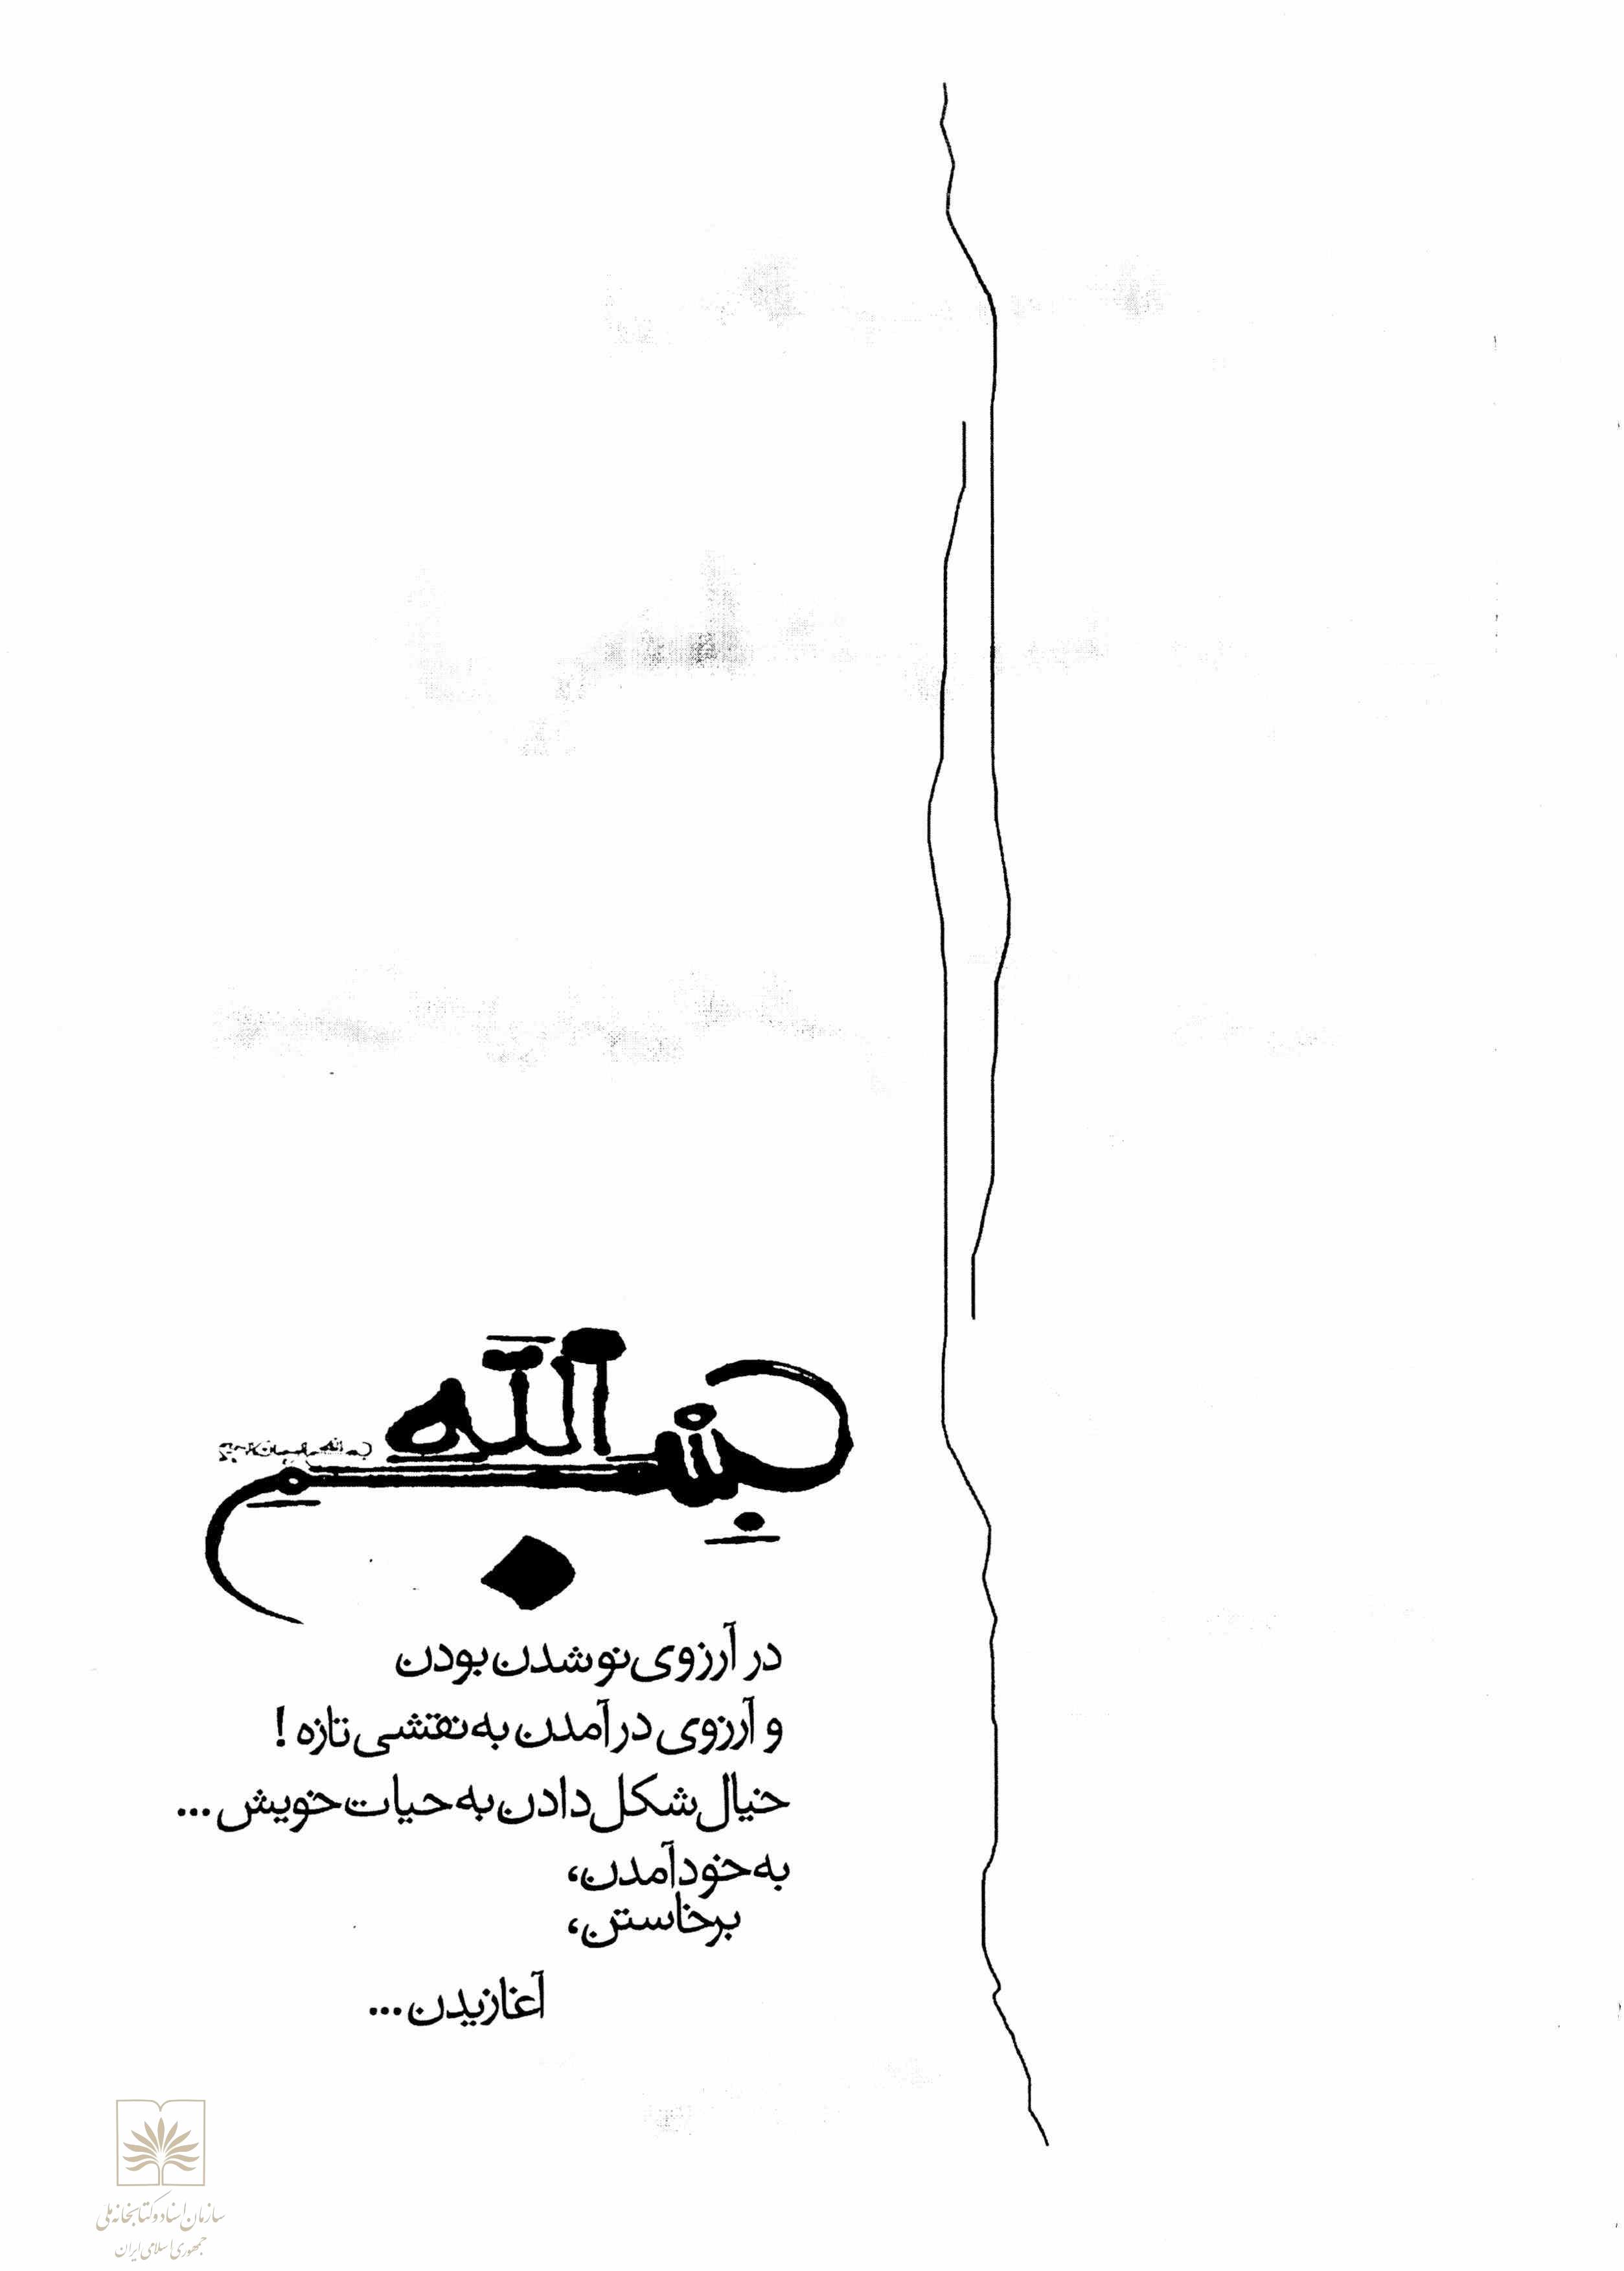 بسم الله
در آرزوی نو شدن بودن
و آرزوی درآمدن به نقشی تازه!
خیال شکل دادن به حیات خویش...
به خود آمدن،
برخاستن،
آغازیدن...
سازمان اسناد و کتابخانه ملی
جمهوری اسلامی ایران